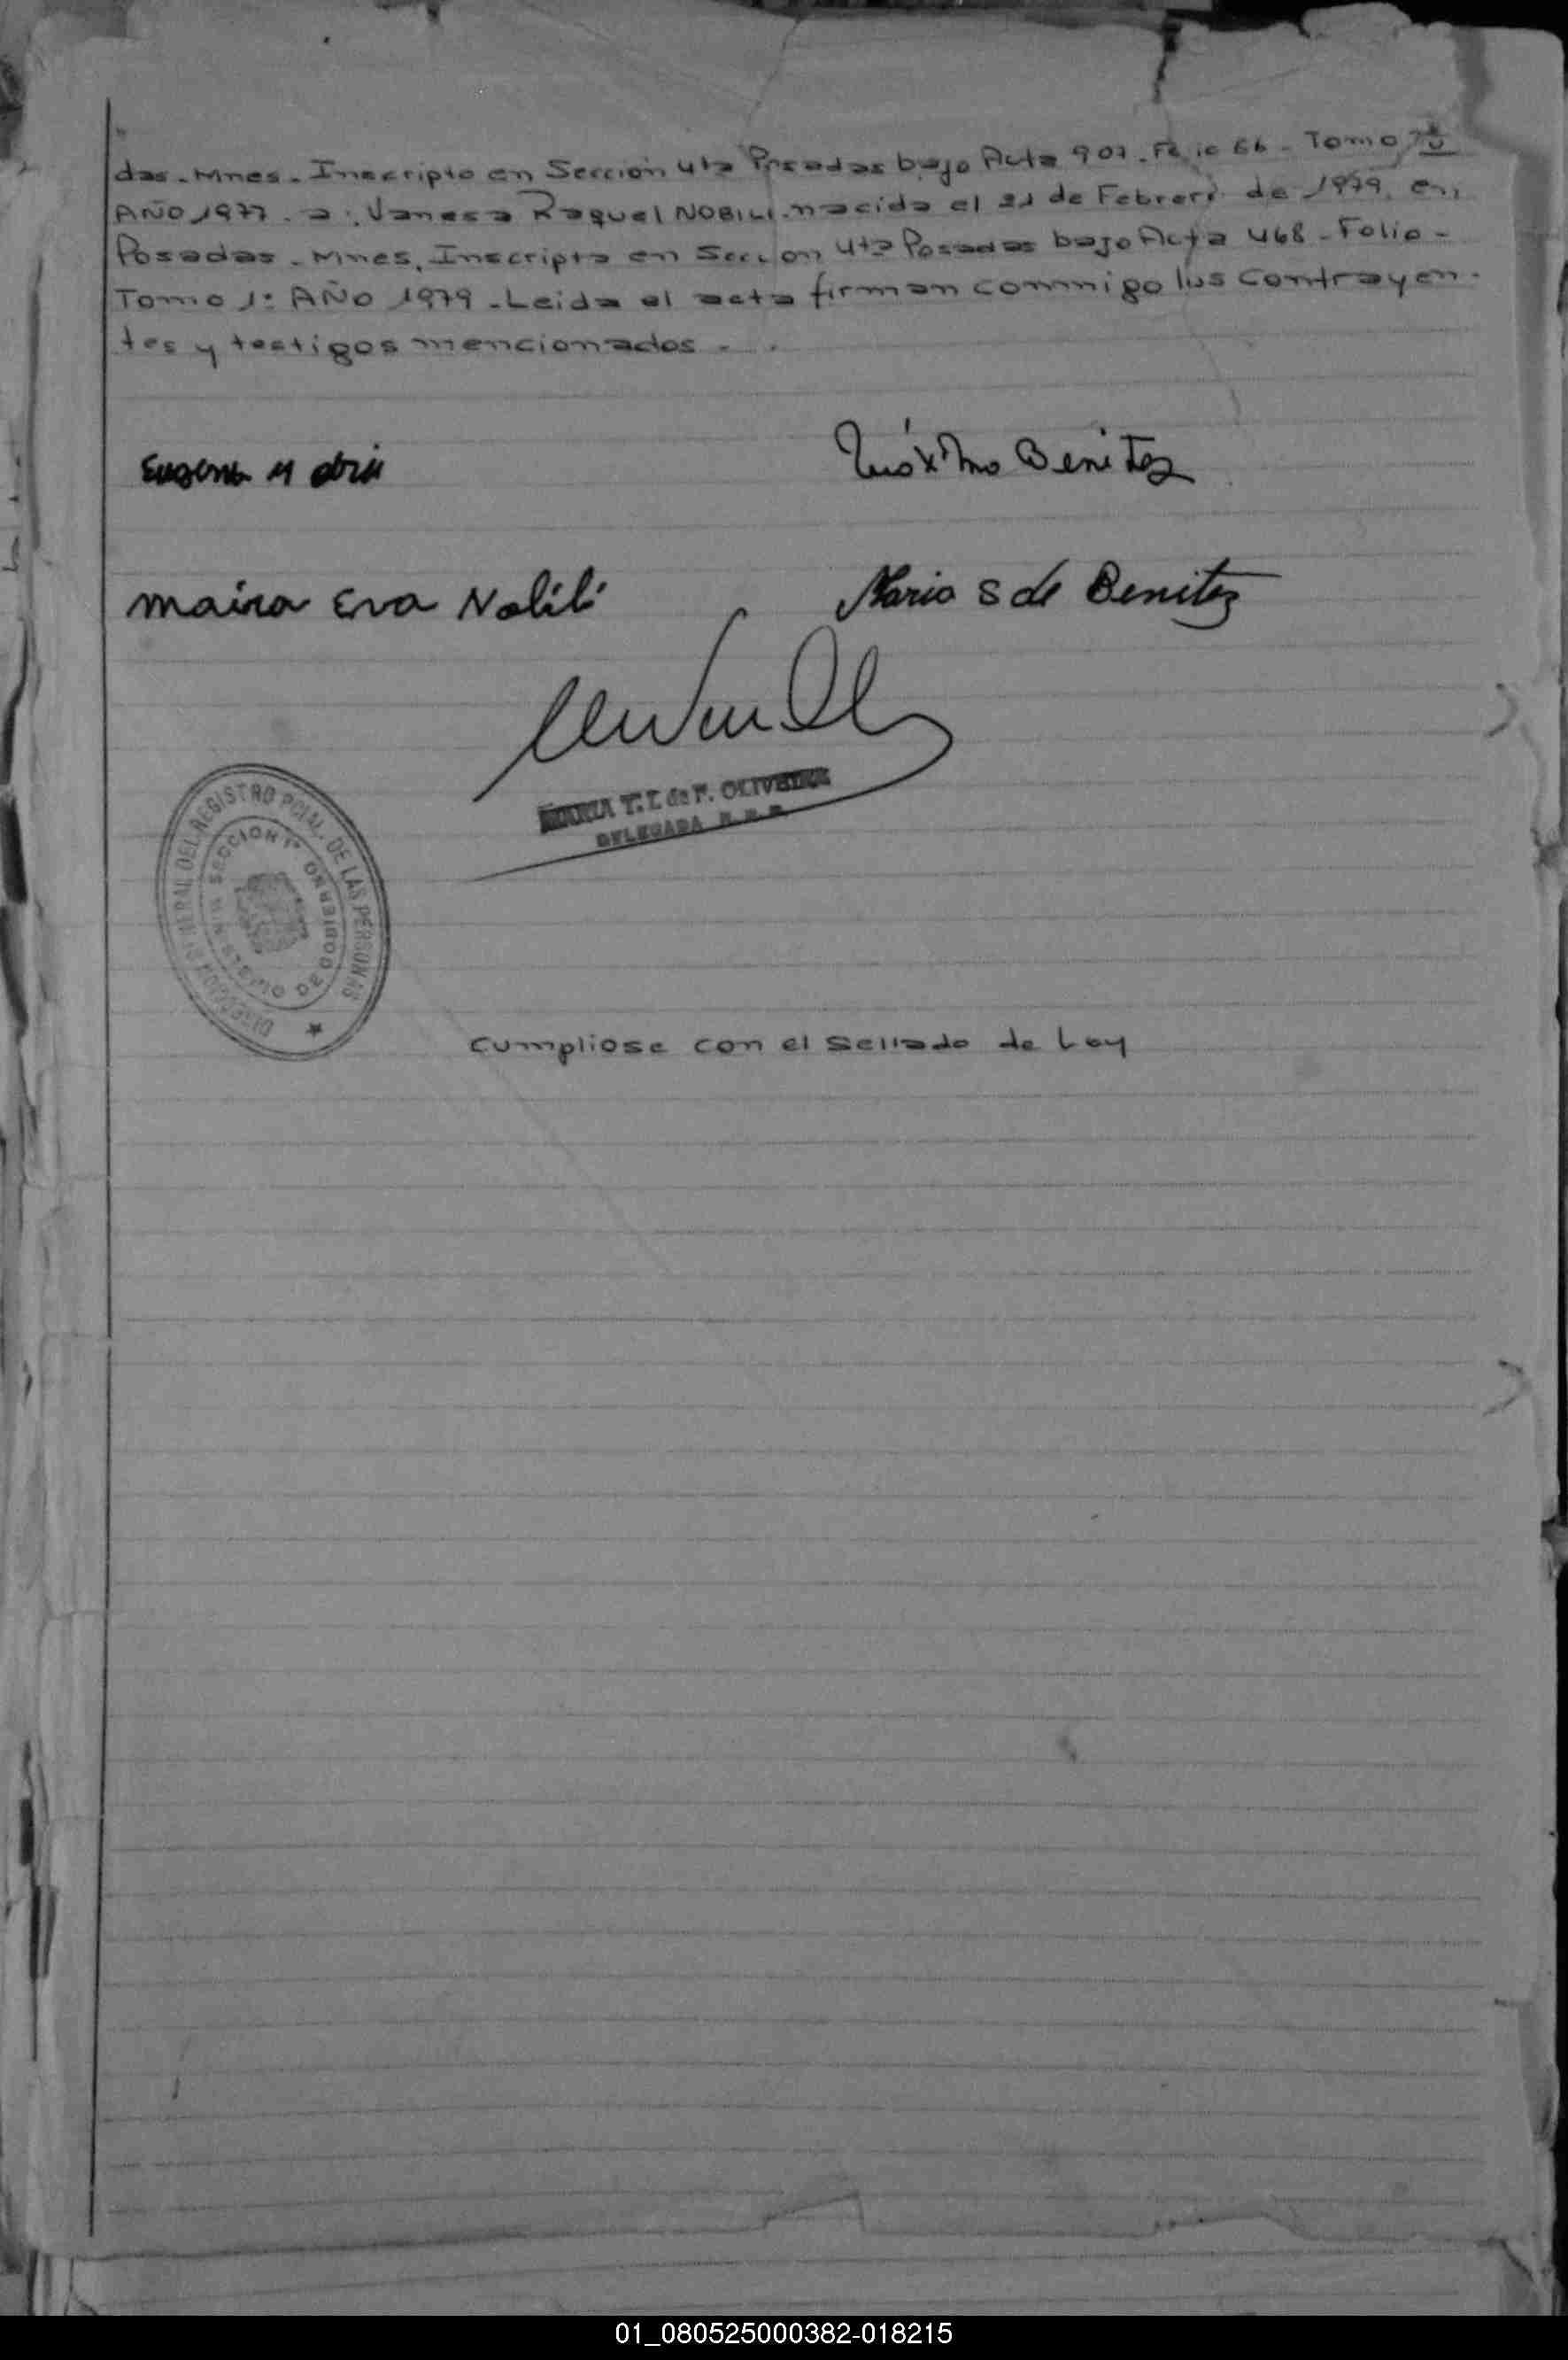 das - Mnes - Inscripto en Sección 4ta Posadas bajo Acta 907 - Folio 66 - Tomo
AÑO 1977 - a: Vanesa Raquel NOBILI - nacida el 21 de Febrero de 1979. en,
Posadas - Mnes, Inscripta en Seccion 4ta Posadas bajo Acta 468 - Folio -
Tomo 1º AÑO 1979 - Leida el acta firman conmigo los contrayen-
tes y testigos mencionados - .
Máximo Benitez
maira Eva Nobili
Maria S de Benitez
MARIA T. I. de F. OLIVEIRA
DELEGADA R. P. P.
DIRECCION GENERAL DEL REGISTRO PCIAL. DE LAS PERSONAS
SECCION 1ª
Cumpliose con el sellado de Ley
01_080525000382-018215